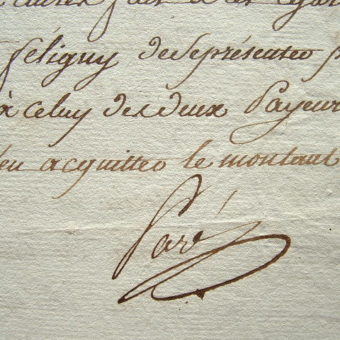 feligny de representer
à celuy des deux Payeur
en acquitter le montant
Paré